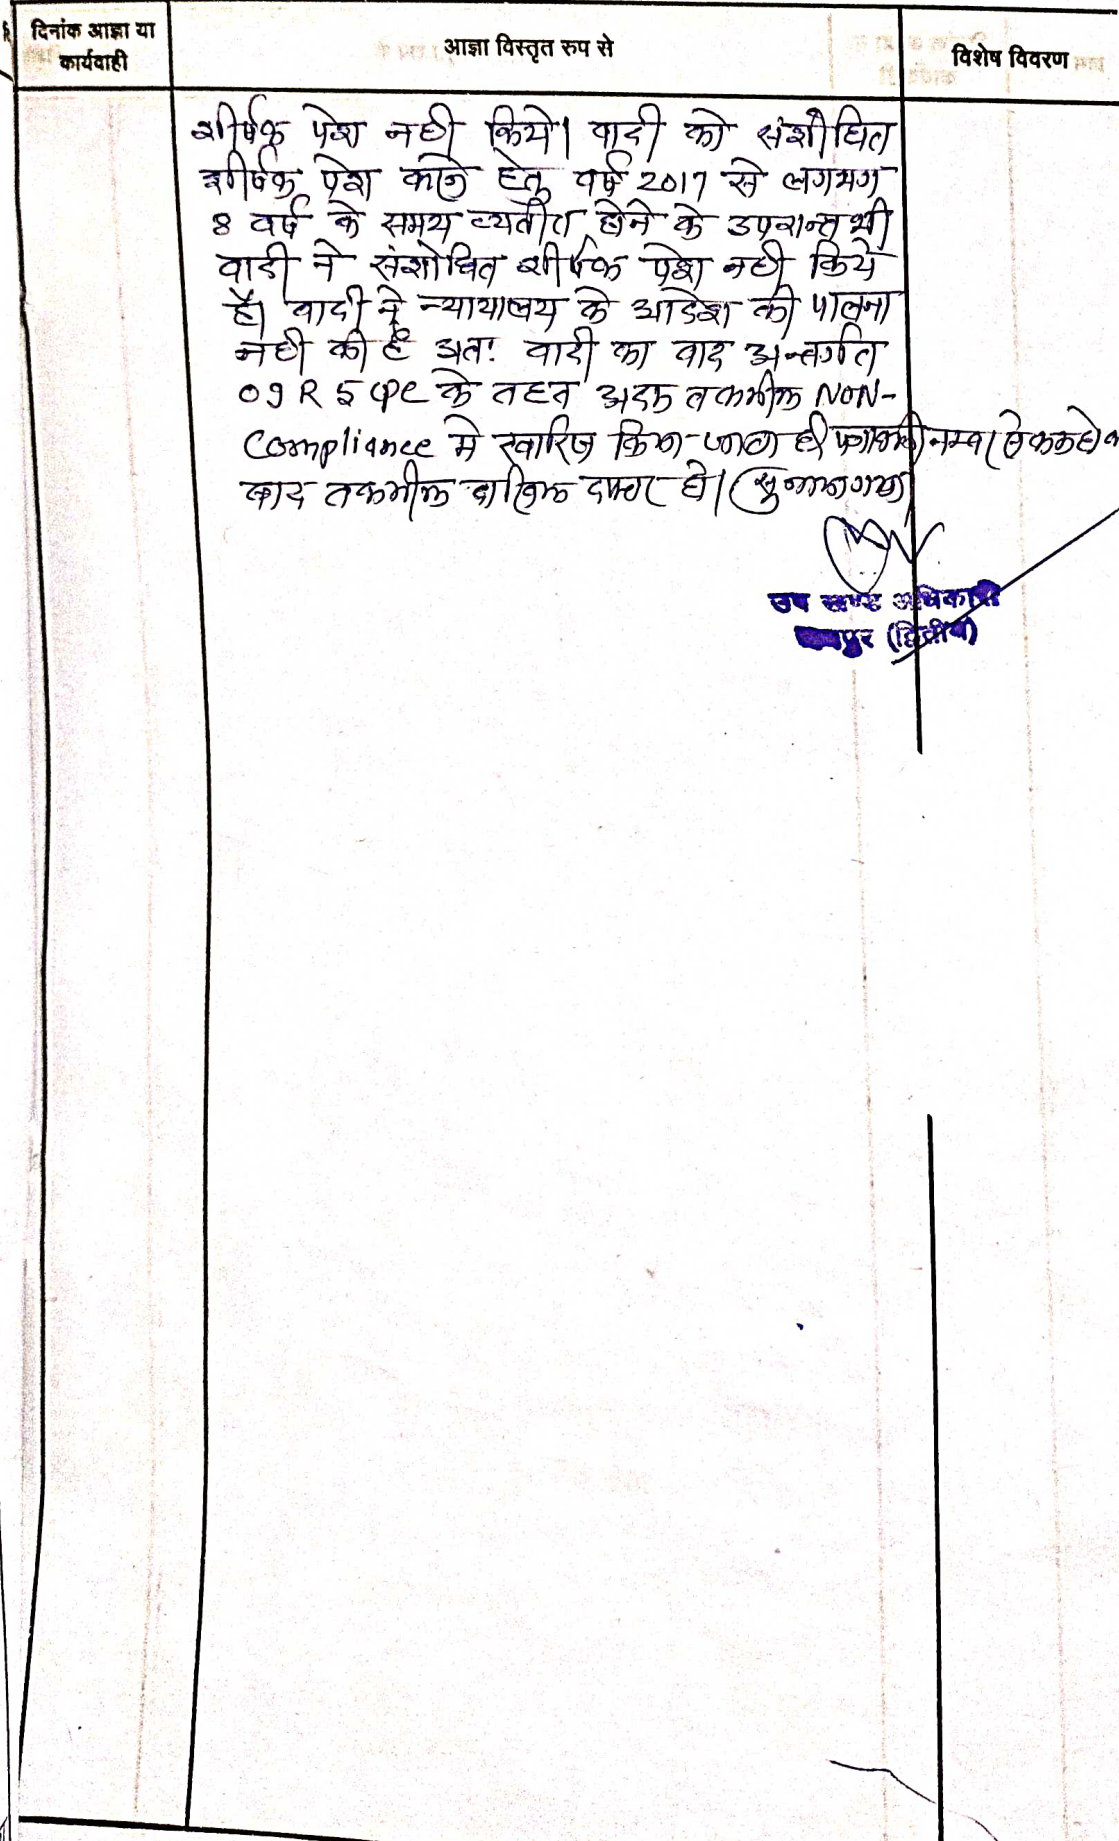 दिनांक आज्ञा या
कार्यवाही
आज्ञा विस्तृत रुप से
विशेष विवरण
शीर्षक पेश नही किये। वादी को संशोधित
शीर्षक पेश करने हेतु वर्ष 2017 से लगभग
8 वर्ष के समय व्यतीत होने के उपरान्त भी
वादी ने संशोधित शीर्षक पेश नही किये
है। वादी ने न्यायालय के आदेश की पालना
नही की है अतः वादी का वाद अन्तर्गत
O9 R 5 CPC के तहत अदम तकमील NON-
Compliance मे खारिज किया जाता है। पत्रावली नम्बर से कम हो
बाद तकमील दाखिल दफ्तर हो। सुनाया गया
उप खण्ड अधिकारी
(द्वितीय)